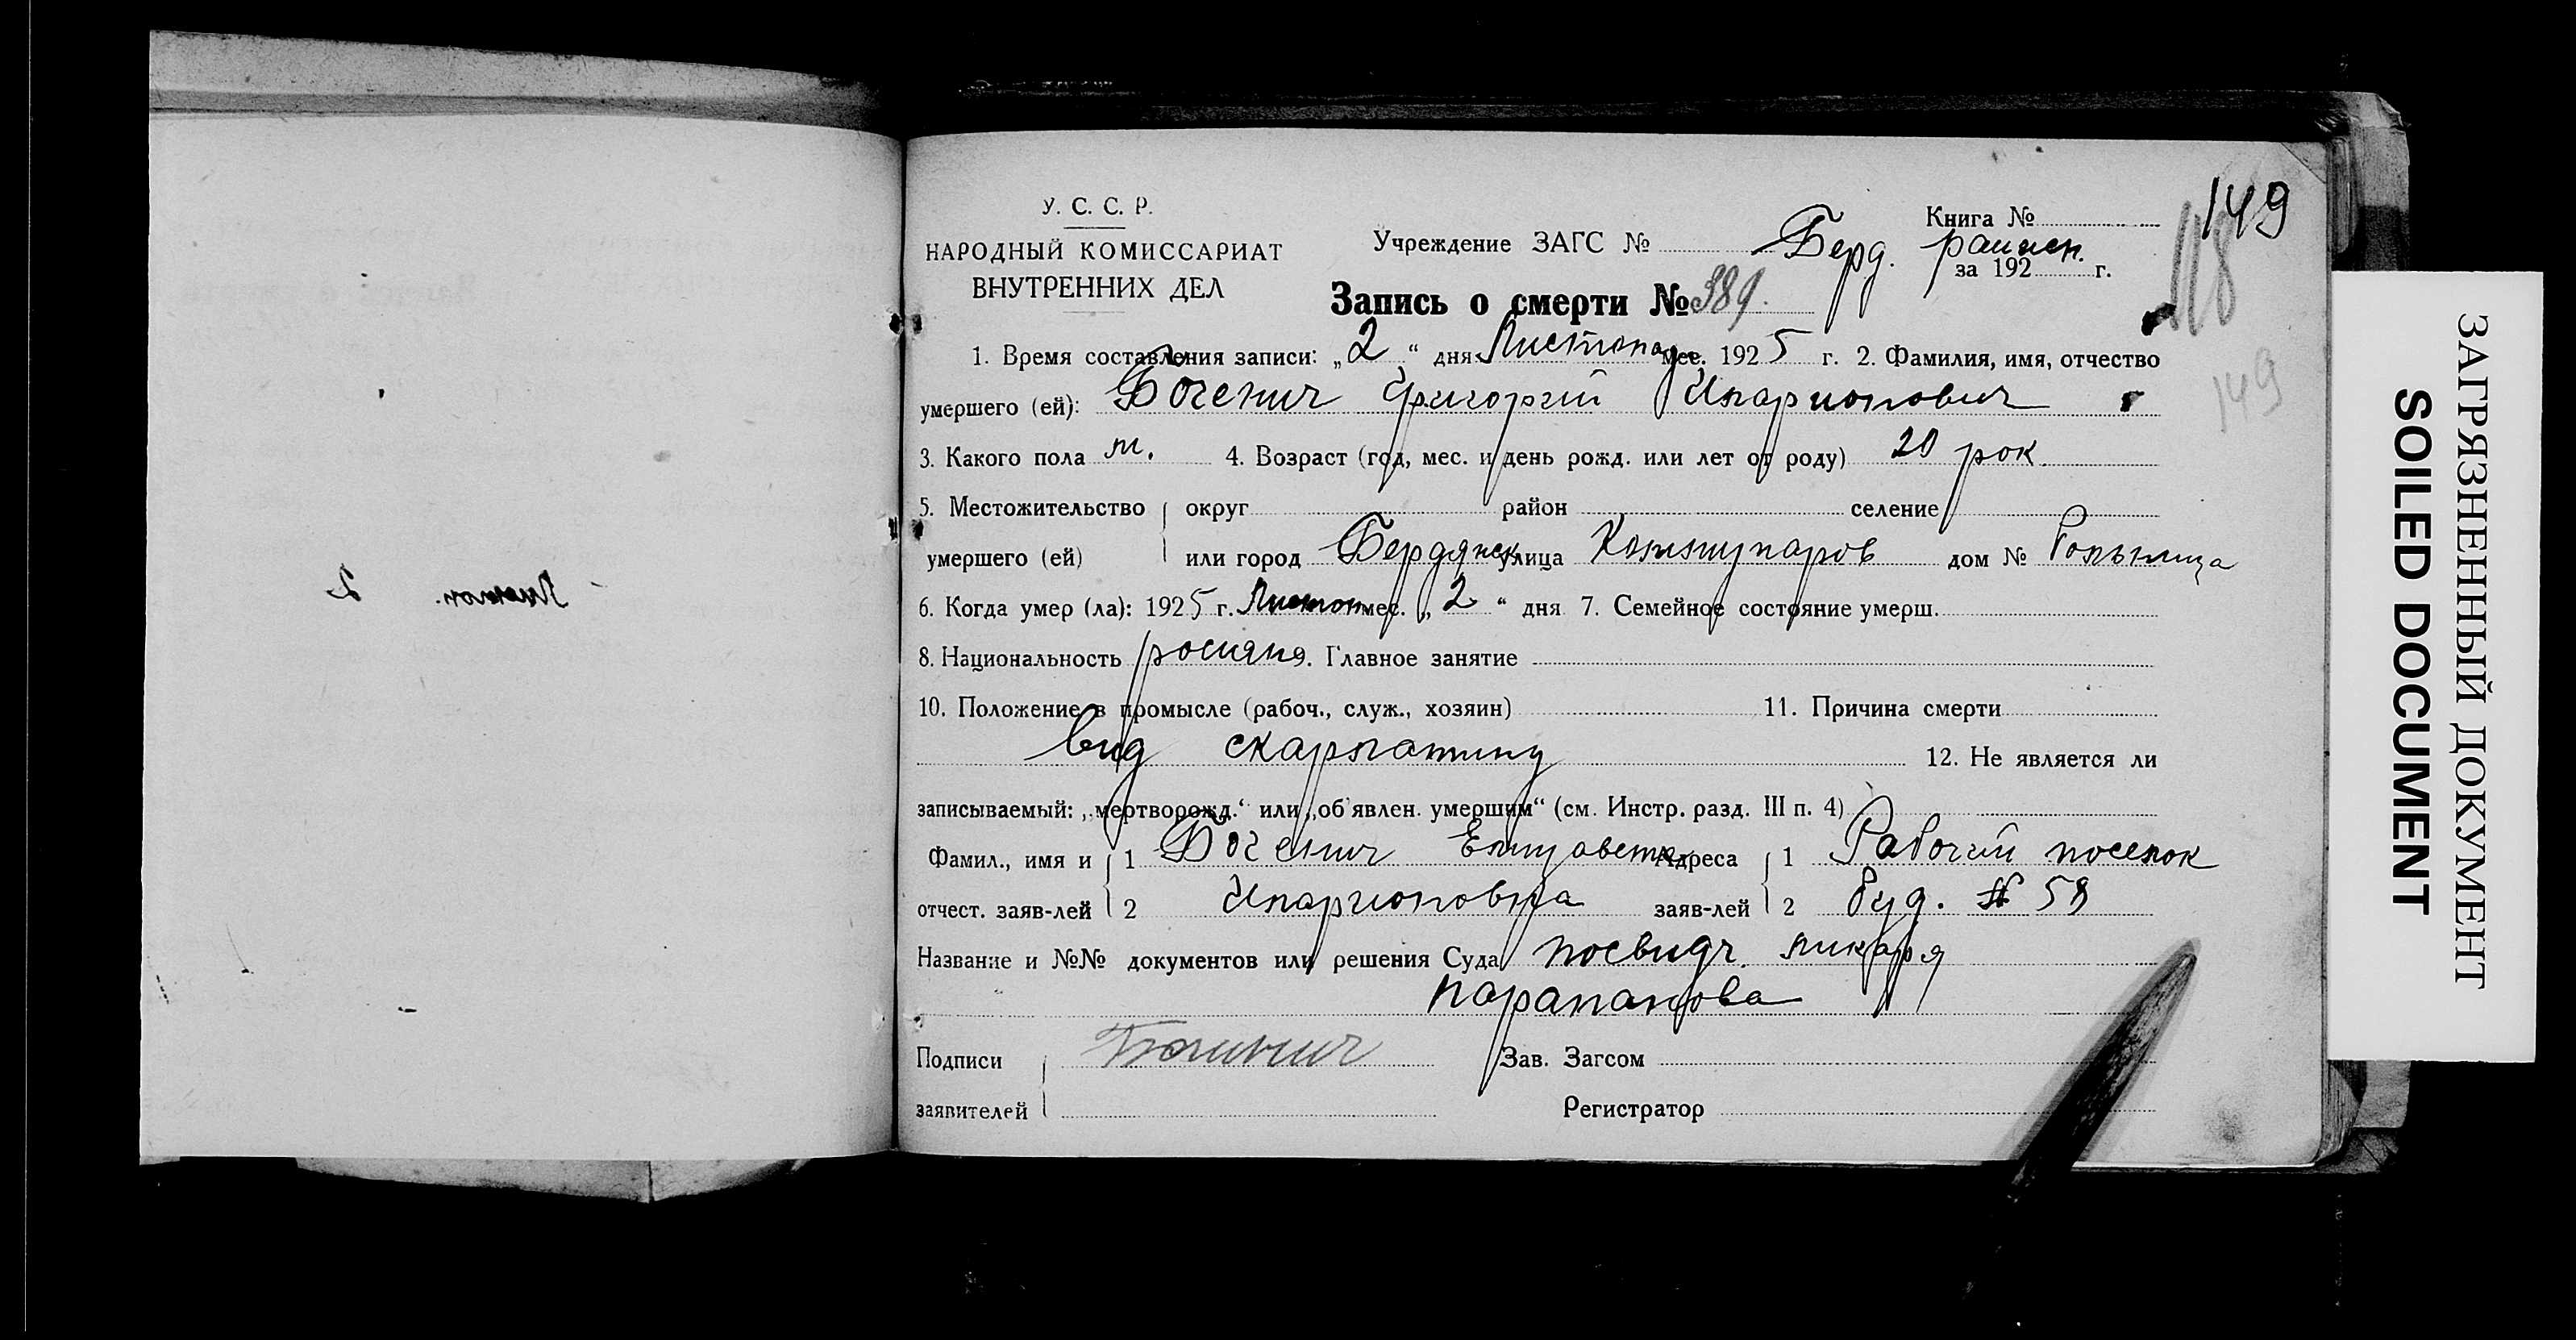 У. С. С. Р.
НАРОДНЫЙ КОМИССАРИАТ
ВНУТРЕННИХ ДЕЛ
Книга №
149
118
149
Учреждение ЗАГС № Берд.
за 192 г.
Запись о смерти № 389.
1. Время составления записи: „2“ дня Листопад мес. 1925 г. 2. Фамилия, имя, отчество
умершего (ей): Боченич Григорий Иларионович
3. Какого пола м. 4. Возраст (год, мес. и день рожд. или лет от роду) 20 рок.
5. Местожительство округ район селение
умершего (ей) или город Бердянск улица Коммунаров дом № Больница
6. Когда умер (ла): 1925 г. Листоп мес. „2“ дня 7. Семейное состояние умерш.
8. Национальность росияня 9. Главное занятие
10. Положение в промысле (рабоч., служ., хозяин) 11. Причина смерти
вид скарлатину 12. Не является ли
записываемый: „мертворожд.“ или „об'явлен. умершим“ (см. Инстр. разд. III п. 4)
Фамил., имя и 1 Боченич Елизавета Адреса 1 Рабочий поселок
отчест. заяв-лей 2 Иларионовна заяв-лей 2 буд. № 58
Название и №№ документов или решения Суда посвидч. ликаря
Карапанова
Подписи Зав. Загсом
заявителей Регистратор
Листоп. 2
ЗАГРЯЗНЕННЫЙ ДОКУМЕНТ
SOILED DOCUMENT